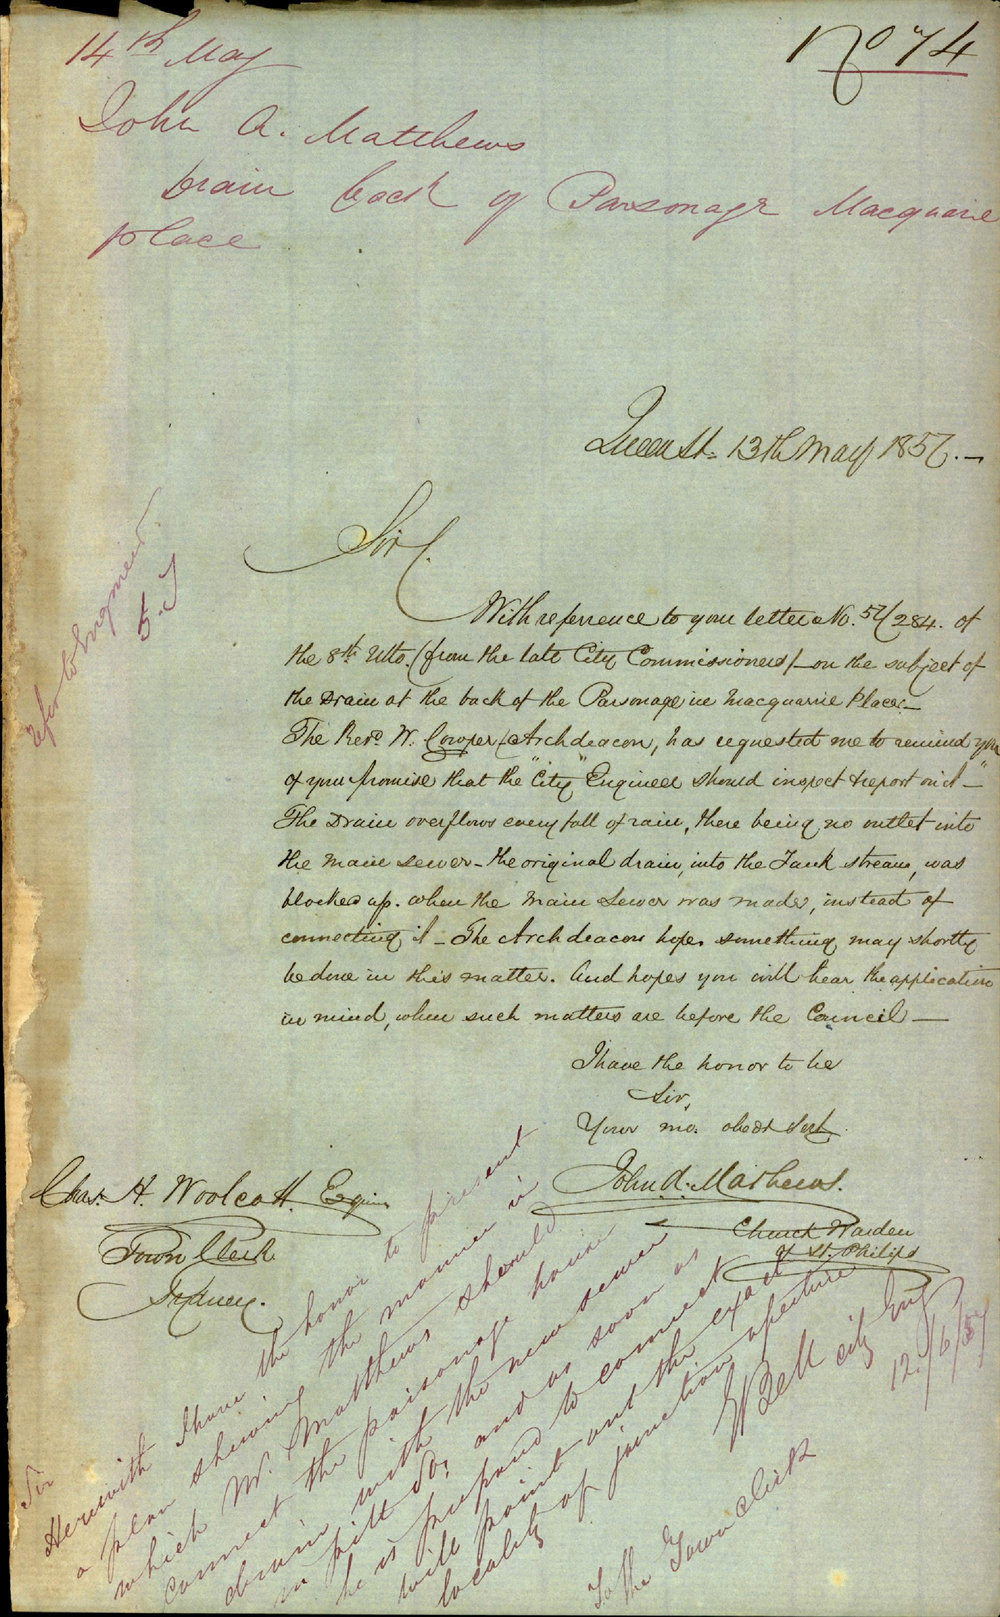 14th May
No 74
John A. Matthews
Drain back of Parsonage Macquarie
place
Queen St. 13th May 1857.—
Sir,
With reference to your letter No. 57/284. of
the 8th Ulto. (from the late City Commissioners) – on the subject of
the Drain at the back of the Parsonage in Macquarie Place.—
The Revd. W. Cowper, Archdeacon, has requested me to remind you
of your promise that the "City" Engineer should inspect & report on it —"
The Drain overflows every fall of rain, there being no outlet into
the main sewer – the original drain, into the Tank stream, was
blocked up. when the Main Sewer was made, instead of
connecting it – The Archdeacon hopes something may shortly
be done in this matter. And hopes you will bear the application
in mind, when such matters are before the Council —
I have the honor to be
Sir,
Your mo. obedt Servt.
John A. Mathews.
Church Warden
of St. Philips
Chas. H. Woolcott. Esquire
Town Clerk
Sydney.
refer to Engineer
Sir
Herewith I have the honor to present
a plan shewing the manner in
which Mr. Matthews should
connect the parsonage house
drain with the new sewer
in pitt St, and as soon as
he is prepared to connect
will point out the exact
locality of junction aperture
Bell city Eng
12/6/57
To the Town clerk